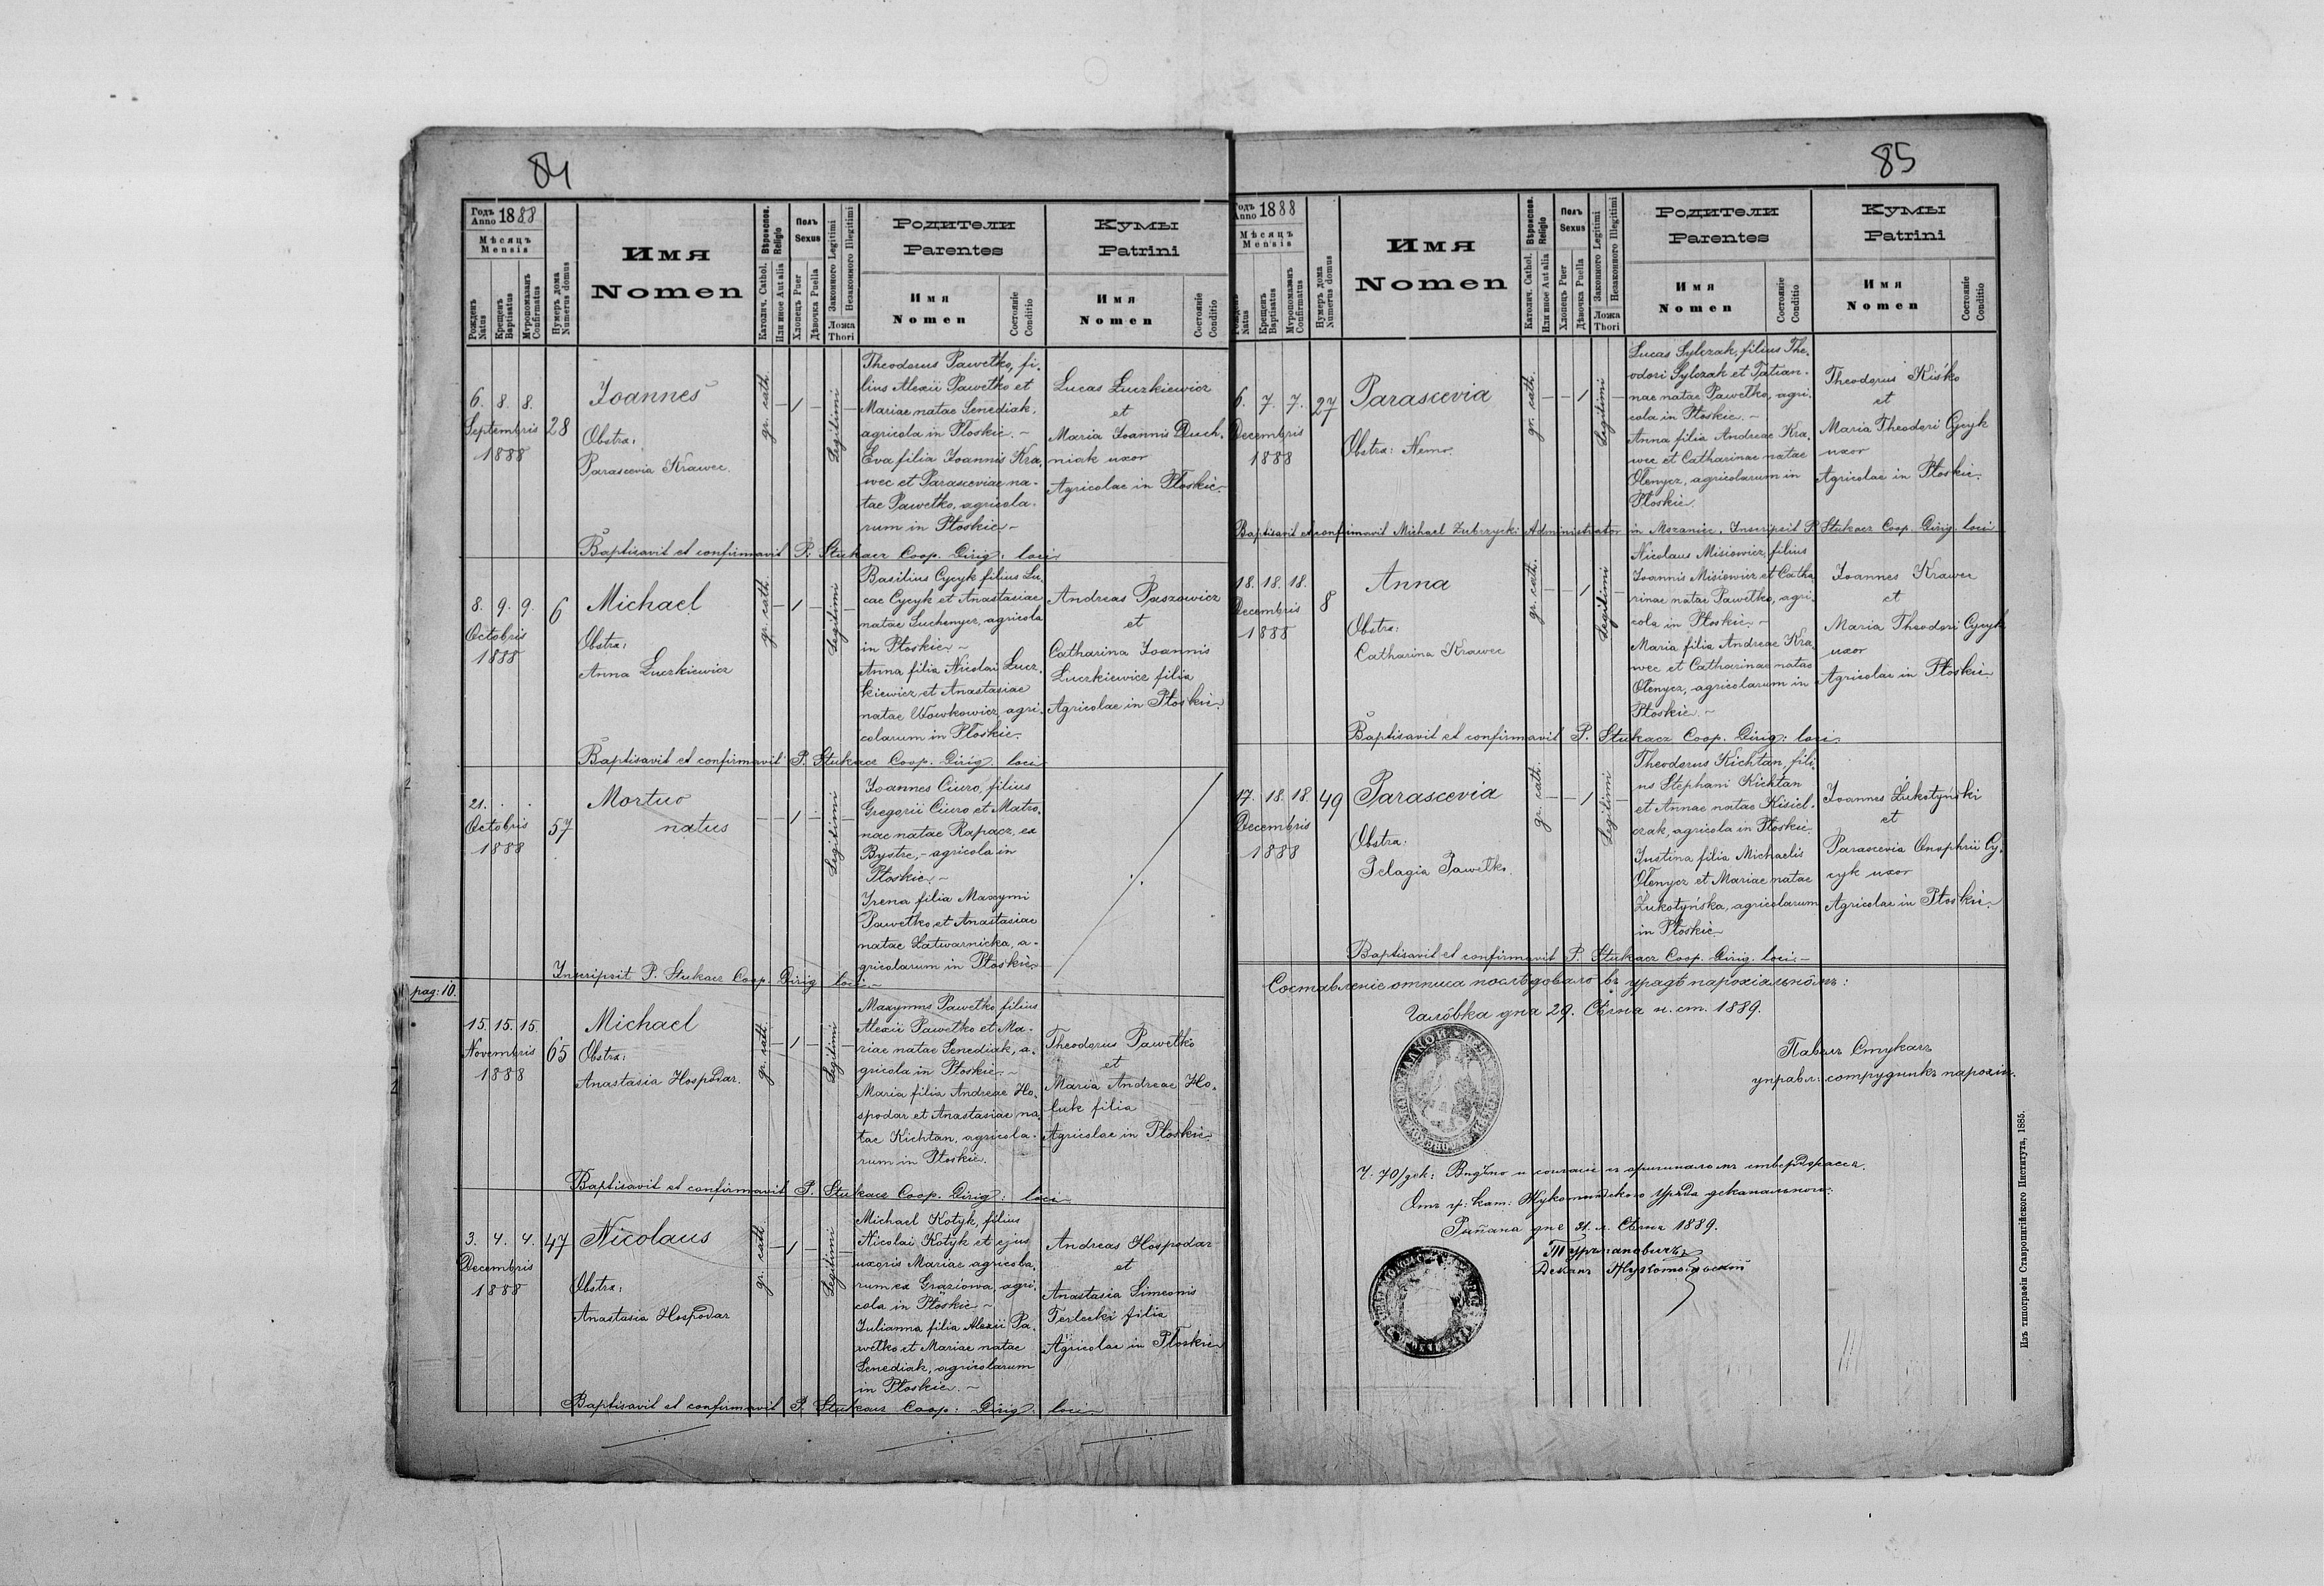 84
Годъ
Anno 1888
Мѣсяцъ
Mensis
Рожденъ
Natus
Крещенъ
Baptisatus
Мѵропомазанъ
Confirmatus
Нумеръ дома
Numerus domus
Имя
Nomen
Вѣроиспов.
Religio
Католич. Cathol.
Или иное Aut alia
Полъ
Sexus
Хлопецъ Puer
Дѣвочка Puella
Законного Legitimi
Незаконного Illegitimi
Ложа
Thori
Родители
Parentes
Имя
Nomen
Состоянiе
Conditio
Кумы
Patrini
Имя
Nomen
Состоянiе
Conditio
6. 8. 8.
Septembris
1888
28
Joannes
Obstra:
Parascevia Krawec.
gr. cath.
1
Legitimi
Theodorus Pawełko, fi-
lius Alexii Pawełko et
Mariae natae Senediak,
agricola in Płoskie. ~
Eva filia Joannis Kra-
wec et Parasceviae na-
tae Pawełko, agricola-
rum in Płoskie ~
Lucas Łuczkiewicz
et
Maria Joannis Duch-
niak uxor
Agricolae in Płoskie.
Baptisavit et confirmavit P. Stukacz Coop. Dirig: loci
8. 9. 9.
Octobris
1888
6
Michael
Obstra:
Anna Łuczkiewicz
gr. cath.
1
Legitimi
Basilius Cycyk filius Lu-
cae Cycyk et Anastasiae
natae Suchenycz, agricola
in Płoskie ~
Anna filia Nicolai Łucz-
kiewicz et Anastasiae
natae Wowkowicz, agri-
colarum in Płoskie.
Andreas Paszowicz
et
Catharina Joannis
Łuczkiewicz filia
Agricolae in Płoskie.
Baptisavit et confirmavit P. Stukacz Coop. Dirig. loci
21. . .
Octobris
1888
57
Mortuo
natus
1
Legitimi
Joannes Ciuro, filius
Gregorii Ciuro et Matro-
nae natae Rapacz, ex
Bystre, - agricola in
Płoskie. ~
Irena filia Maxymi
Pawełko et Anastasiae
natae Łatwarnicka, a-
gricolarum in Płoskie
Inscripsit P. Stukacz Coop. Dirig loci. ~
pag: 10.
15. 15. 15.
Novembris
1888
65
Michael
Obstra:
Anastasia Hospodar.
gr. cath.
1
Legitimi
Maxymus Pawełko filius
Alexii Pawełko et Ma-
riae natae Senediak, a-
gricola in Płoskie. ~
Maria filia Andreae Ho-
spodar et Anastasiae na-
tae Kichtan, agricola-
rum in Płoskie.
Theodorus Pawełko
et
Maria Andreae Ho-
luk filia
Agricolae in Płoskie
Baptisavit et confirmavit P. Stukacz Coop. Dirig: loci
3. 4. 4.
Decembris
1888
47
Nicolaus
Obstra:
Anastasia Hospodar
gr. cath.
1
Legitimi
Michael Kotyk, filius
Nicolai Kotyk et ejus
uxoris Mariae agricola-
rum ex Graziowa, agri-
cola in Płoskie ~
Julianna filia Alexii Pa-
wełko et Mariae natae
Senediak, agricolarum
in Płoskie. ~
Andreas Hospodar
et
Anastasia Simeonis
Terlecki filia
Agricolae in Płoskie
Baptisavit et confirmavit P. Stukacz Coop: Dirig: loci
85
Годъ
Anno 1888
Мѣсяцъ
Mensis
Рожденъ
Natus
Крещенъ
Baptisatus
Мѵропомазанъ
Confirmatus
Нумеръ дома
Numerus domus
Имя
Nomen
Вѣроиспов.
Religio
Католич. Cathol.
Или иное Aut alia
Полъ
Sexus
Хлопецъ Puer
Дѣвочка Puella
Законного Legitimi
Незаконного Illegitimi
Ложа
Thori
Родители
Parentes
Имя
Nomen
Состоянiе
Conditio
Кумы
Patrini
Имя
Nomen
Состоянiе
Conditio
6. 7. 7.
Decembris
1888
27
Parascevia
Obstra: Nemo.
gr. cath.
1
Legitimi
Lucas Sylczak, filius The-
odori Sylczak et Tatian-
nae natae Pawełko, agri-
cola in Płoskie. ~
Anna filia Andreae Kra-
wec et Catharinae natae
Ołenycz, agricolarum in
Płoskie.
Theodorus Kiśko
et
Maria Theodori Cycyk
uxor
Agricolae in Płoskie.
Baptisavit et confirmavit Michael Zubrzycki Administrator in Mszaniec. Inscripsit P. Stukacz Coop. Dirig. loci
18. 18. 18.
Decembris
1888
8
Anna
Obstra:
Catharina Krawec
gr. cath.
1
Legitimi
Nicolaus Misiowicz, filius
Joannis Misiowicz et Catha-
rinae natae Pawełko, agri-
cola in Płoskie ~
Maria filia Andreae Kra-
wec et Catharinae natae
Ołenycz, agricolarum in
Płoskie. ~
Joannes Krawec
et
Maria Theodori Cycyk
uxor
Agricolae in Płoskie
Baptisavit et confirmavit P. Stukacz Coop. Dirig: loci.
17. 18. 18.
Decembris
1888
49
Parascevia
Obstra:
Pelagia Pawełko
gr. cath.
1
Legitimi
Theodorus Kichtan, fili-
us Stephani Kichtan
et Annae natae Kisiel-
czak, agricola in Płoskie.
Justina filia Michaelis
Ołenycz et Mariae natae
Żukotyńska, agricolarum
in Płoskie
Joannes Żukotyński
et
Parascevia Onophrii Cy-
cyk uxor
Agricolae in Płoskie.
Baptisavit et confirmavit P. Stukacz Coop. Dirig. loci. -
Составленіе отписа послѣдовало въ урядѣ парохіальнôмъ:
Галôвка дня 29. Сѣчня н. ст. 1889.
Павелъ Стукачъ
управл: сотрудникъ парохіи.
Ч. 70/дек:
Рипяна дня 31. Сѣчня 1889.
Деканъ
Изъ типографіи Ставропигійского Института, 1885.